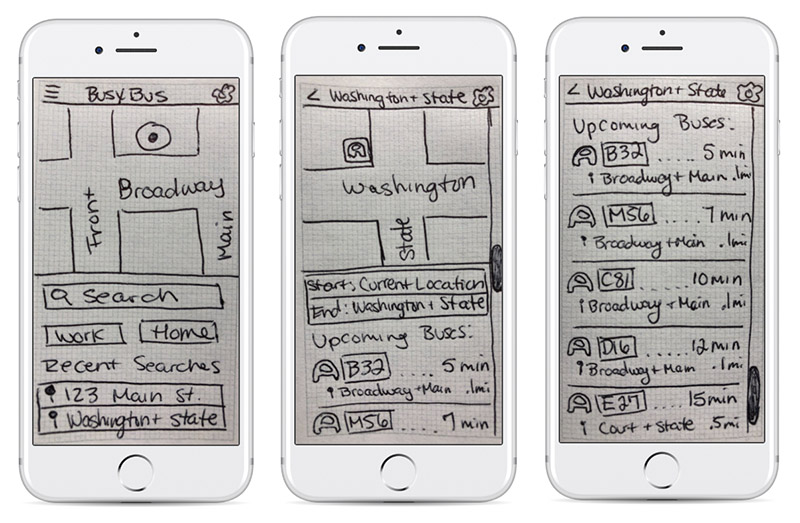 BusyBus
Broadway
Front
Main
Search
Work
Home
Recent Searches
123 Main St.
Washington + State
< Washington + State
Washington
State
Start: Current Location
End: Washington + State
Upcoming Buses:
B32 5 min
Broadway + Main .1mi
M56 7 min
< Washington + State
Upcoming Buses:
B32 ..... 5 min
Broadway + Main .1mi
M56 .... 7 min
Broadway + Main .1mi
C81 ..... 10 min
Broadway + Main .1mi
D16 ..... 12 min
Broadway + Main .1mi
E27 ..... 15 min
Court + State .5mi